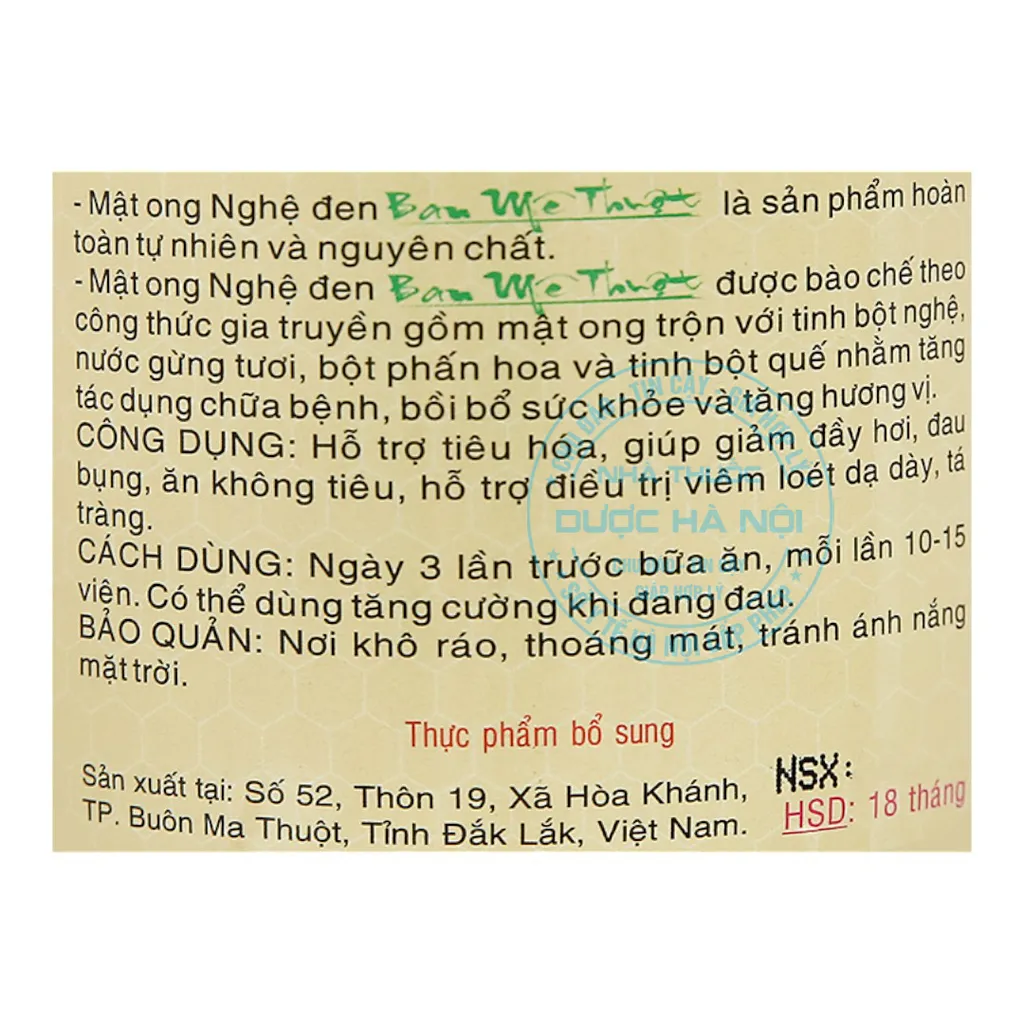 - Mật ong Nghệ đen Ban Mê Thuột là sản phẩm hoàn
toàn tự nhiên và nguyên chất.
- Mật ong Nghệ đen Ban Mê Thuột được bào chế theo
công thức gia truyền gồm mật ong trộn với tinh bột nghệ,
nước gừng tươi, bột phấn hoa và tinh bột quế nhằm tăng
tác dụng chữa bệnh, bồi bổ sức khỏe và tăng hương vị.
CÔNG DỤNG: Hỗ trợ tiêu hóa, giúp giảm đầy hơi, đau
bụng, ăn không tiêu, hỗ trợ điều trị viêm loét dạ dày, tá
tràng.
CÁCH DÙNG: Ngày 3 lần trước bữa ăn, mỗi lần 10-15
viên. Có thể dùng tăng cường khi đang đau.
BẢO QUẢN: Nơi khô ráo, thoáng mát, tránh ánh nắng
mặt trời.
Thực phẩm bổ sung
Sản xuất tại: Số 52, Thôn 19, Xã Hòa Khánh,
TP. Buôn Ma Thuột, Tỉnh Đắk Lắk, Việt Nam.
NSX:
HSD: 18 tháng
NHÀ THUỐC
DƯỢC HÀ NỘI